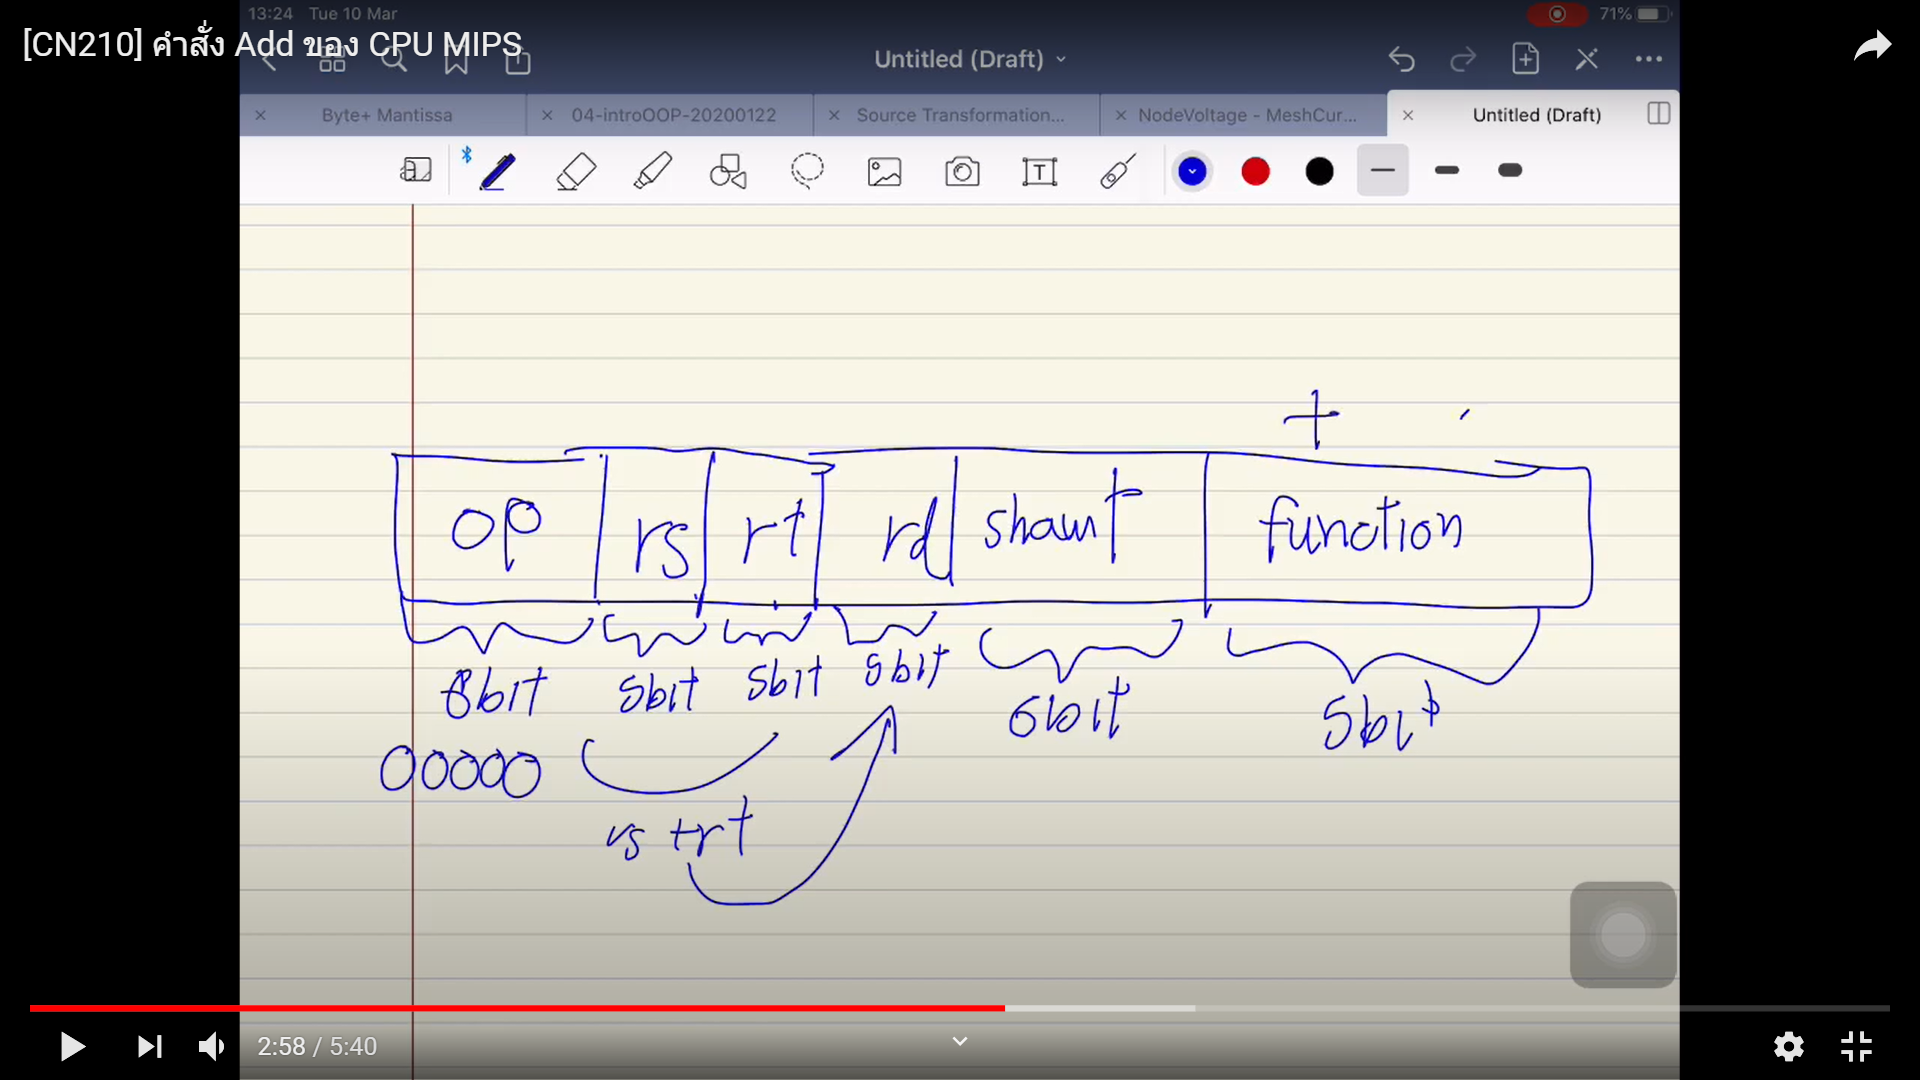 13:24 Tue 10 Mar
71%
[CN210] คำสั่ง Add ของ CPU MIPS
Untitled (Draft)
Byte+ Mantissa
04-introOOP-20200122
Source Transformation...
NodeVoltage - MeshCur...
Untitled (Draft)
+
op rs rt rd shamt function
8bit 5bit 5bit 5bit 6bit 5bit
00000
rs + rt
2:58 / 5:40